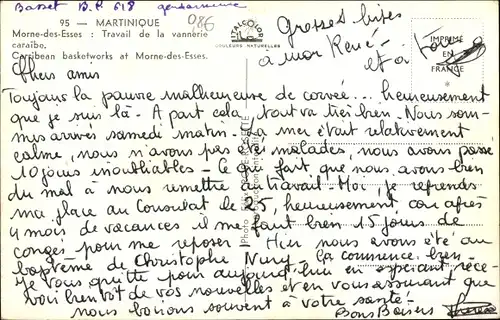 Basset B.P. 618 gendarmerie
086
95 - MARTINIQUE
Morne-des-Esses : Travail de la vannerie
caraïbe.
Carribean basketworks at Morne-des-Esses.
ITALCOLOR
COULEURS NATURELLES
IMPRIMÉ
EN
FRANCE
Grosses bises
à mon René
et à
Chers amis
Toujours la pauvre malheureuse de corvée... heureusement
que je suis là - A part cela, tout va très bien. Nous som-
mes arrivés samedi matin - La mer était relativement
calme, nous n'avons pas été malades, nous avons passé
10 jours inoubliables - Ce qui fait que nous avons bien
du mal à nous remettre au travail - Moi, je reprends
ma place au Consulat le 25, heureusement car après
4 mois de vacances il me faut bien 15 jours de
congés pour me reposer - Hier nous avons été au
baptême de Christophe la commence bien -
Je vous quitte pour aujourd'hui en espérant rece-
voir bientôt de vos nouvelles et en vous assurant que
nous buvons souvent à votre santé -
Bons Baisers